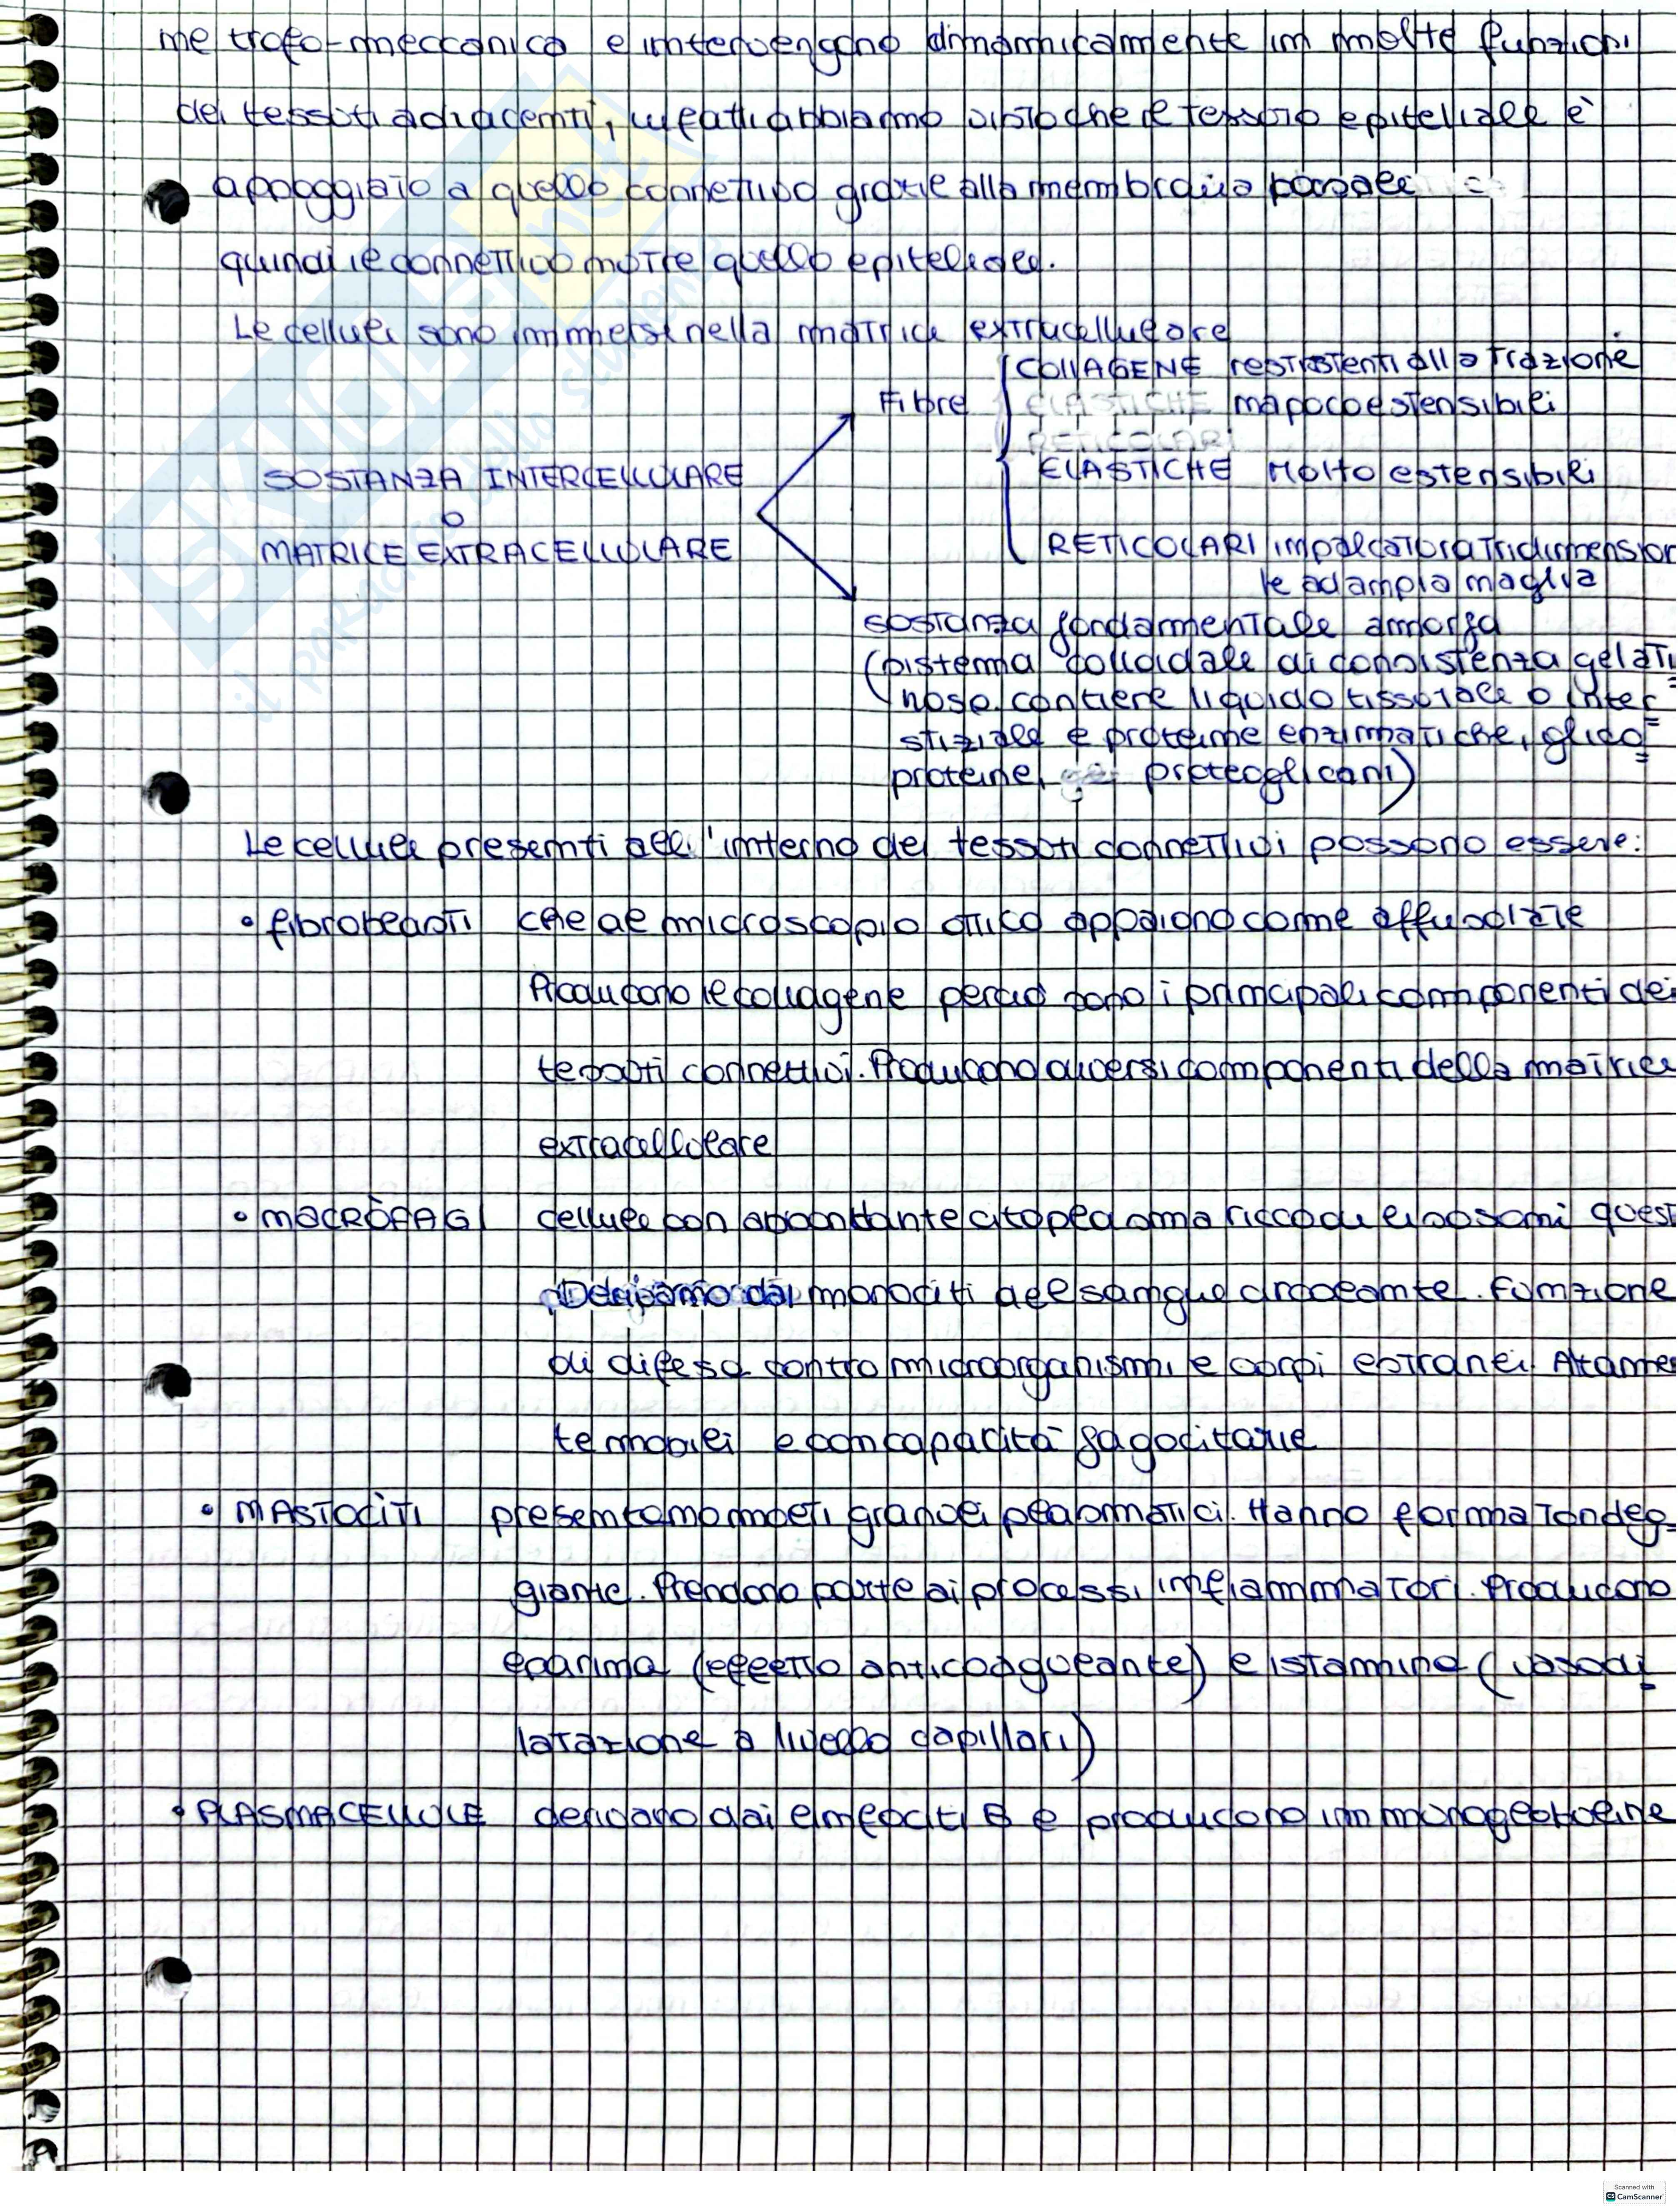 ne trofo-meccanica e intervengono dinamicamente in molte funzioni
dei tessuti adiacenti, infatti abbiamo visto che il tessuto epiteliale è
appoggiato a quello connettivo grazie alla membrana basale e
quindi il connettivo nutre quello epiteliale.
Le cellule sono immerse nella matrice extracellulare
COLLAGENE resistenti alla trazione
Fibre ELASTICHE ma poco estensibili
RETICOLARI
SOSTANZA INTERCELLULARE ELASTICHE Molto estensibili
O
MATRICE EXTRACELLULARE RETICOLARI impalcatura tridimension
le ad ampia maglia
sostanza fondamentale amorfa
(sistema colloidale di consistenza gelati=
nosa. contiene liquido tissutale o inter=
stiziale e proteine enzimatiche, glico=
proteine, proteoglicani)
Le cellule presenti all'interno dei tessuti connettivi possono essere:
• fibroblasti che al microscopio ottico appaiono come affusolate
Producono il collagene perciò sono i principali componenti dei
tessuti connettivi. Producono diversi componenti della matrice
extracellulare
• MACRÒFAGI cellule con abbondante citoplasma ricco di lisosomi quest
Derivano dai monociti del sangue circolante. Funzione
di difesa contro microorganismi e corpi estranei. Altamen
te mobili e con capacità fagocitarie
• MASTOCITI presentano molti granuli plasmatici. Hanno forma tondeg=
giante. Prendono parte ai processi infiammatori. Producono
eparina (effetto anticoagulante) e istamina (vasodi=
latazione a livello capillari)
• PLASMACELLULE derivano dai linfociti B e producono immunoglobuline
SKUOLA.net
il paradiso dello studente
Scanned with
CamScanner